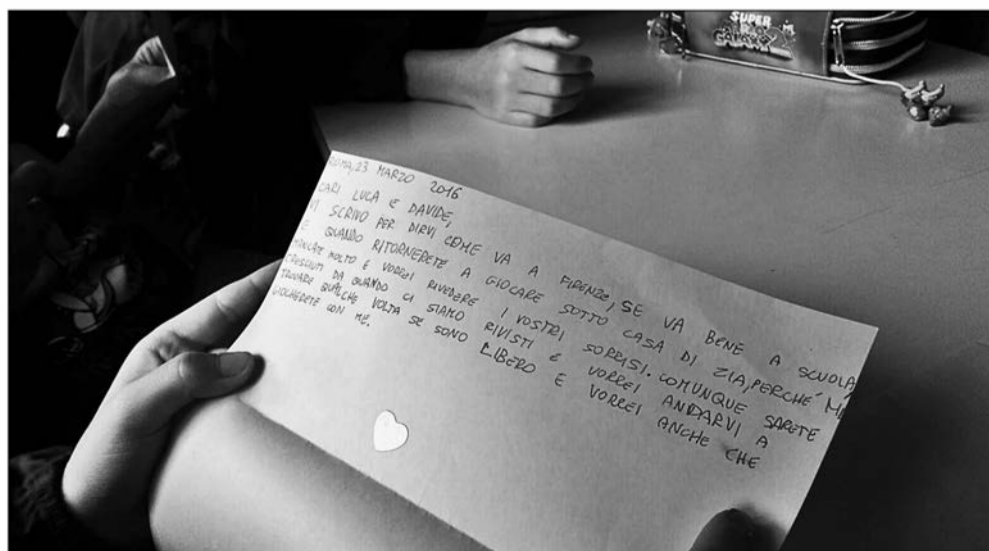 SUPER
GALAXY
ROMA, 23 MARZO 2016
CARI LUCA E DAVIDE,
VI SCRIVO PER DIRVI COME VA A FIRENZE, SE VA BENE A SCUOLA
E QUANDO RITORNERETE A GIOCARE SOTTO CASA DI ZIA, PERCHÉ MI
MANCATE MOLTO E VORREI RIVEDERE I VOSTRI SORRISI. COMUNQUE SARETE
CRESCIUTI DA QUANDO CI SIAMO RIVISTI E VORREI ANDARVI A
TROVARE QUALCHE VOLTA SE SONO LIBERO E VORREI ANCHE CHE
GIOCHERETE CON ME.